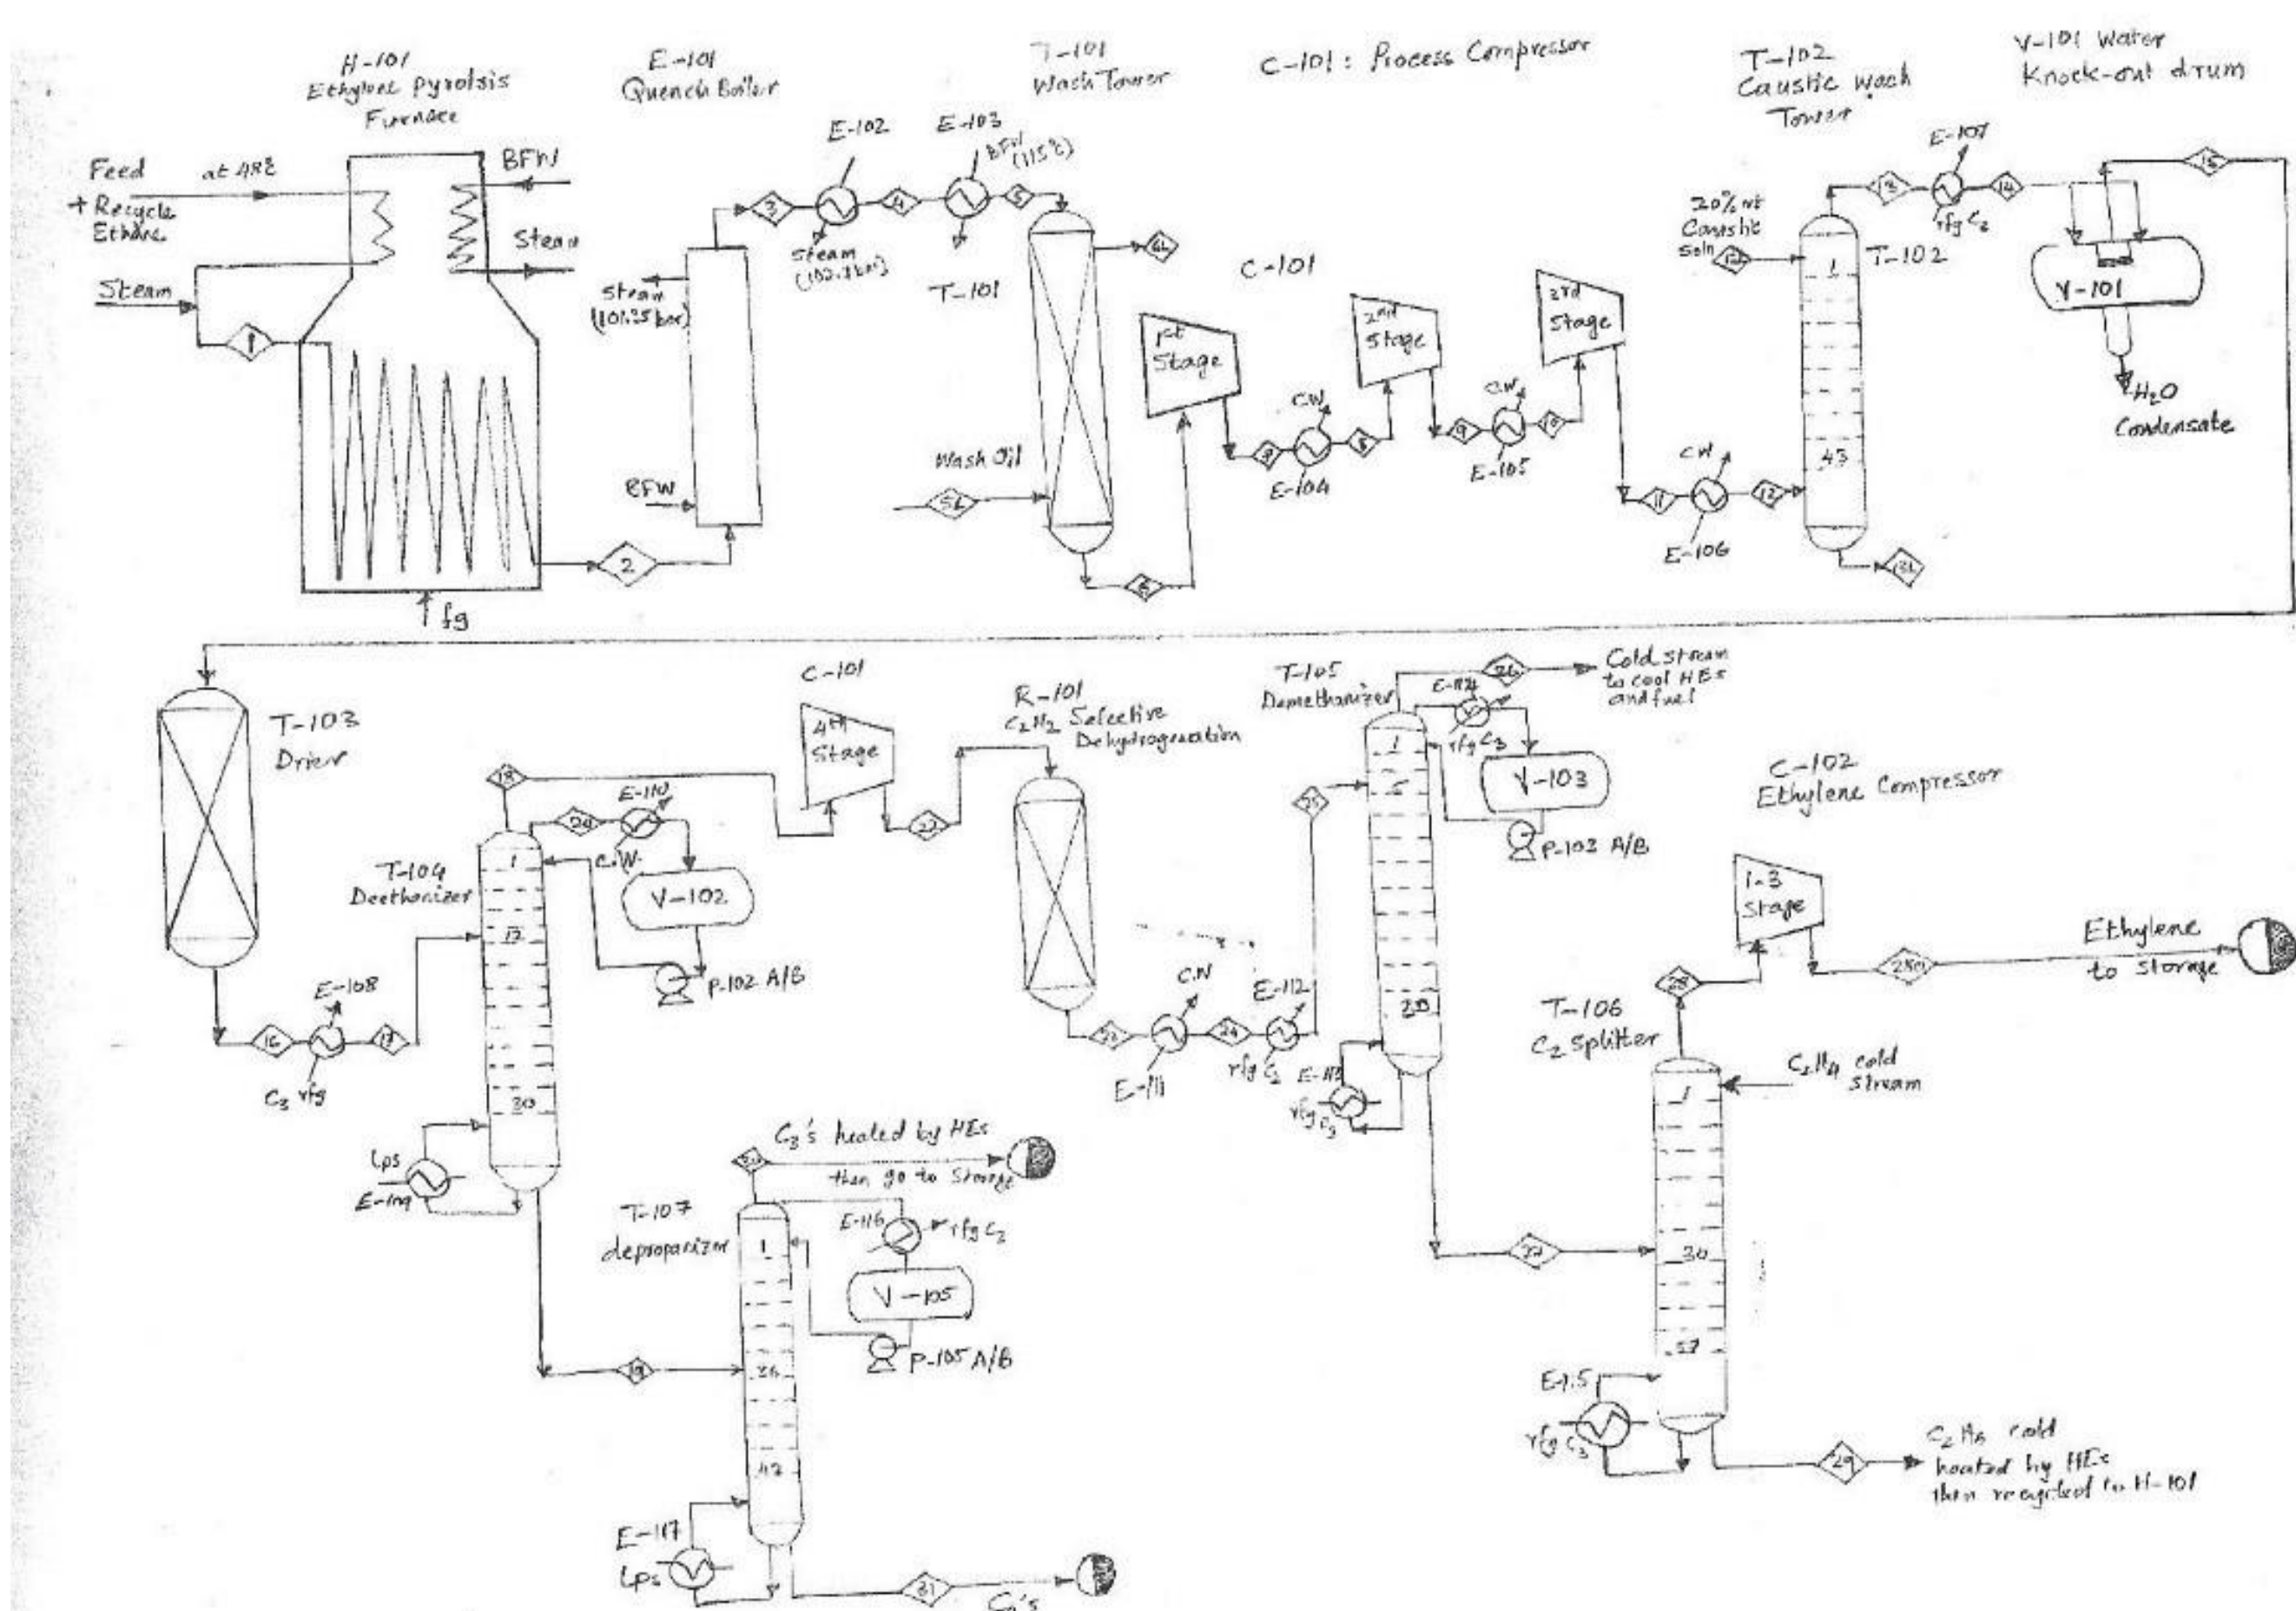 H-101
Ethylene pyrolsis
Furnace
E-101
Quench Boiler
T-101
Wash Tower
C-101: Process Compressor
T-102
Caustic Wash
Tower
V-101 Water
Knock-out drum
Feed
+ Recycle
Ethane
BFW
Steam
Steam
1
fg
2
BFW
Steam
(101.25 bar)
3
E-102
4
E-103
BFW
(115°C)
5
T-101
6L
Wash Oil
5L
6
C-101
1st
Stage
CW
8
E-104
2nd
Stage
9
CW
10
E-105
3rd
Stage
11
CW
12
E-106
20% wt
Caustic
soln
1
T-102
43
13
E-107
rfg C2
14
15
V-101
H2O
Condensate
T-103
Drier
16
E-108
17
C3 rfg
T-104
Deethanizer
18
20
E-110
C.W.
1
17
30
V-102
P-102 A/B
lps
E-109
C-101
4th
Stage
R-101
C2H2 Selective
Dehydrogenation
CW
24
E-111
E-112
25
T-105
Demethanizer
26
Cold stream
to cool HEs
and fuel
rfg C3
1
5
V-103
P-103 A/B
rfg C3
27
C-102
Ethylene Compressor
1-3
Stage
28
Ethylene
to storage
T-106
C2 Splitter
C2H4 cold
stream
1
30
rfg C3
29
C2H6 cold
heated by HEs
then recycled to H-101
C3's heated by HEs
then go to storage
T-107
depropanizer
E-116
1
V-105
P-105 A/B
19
E-117
Lps
31